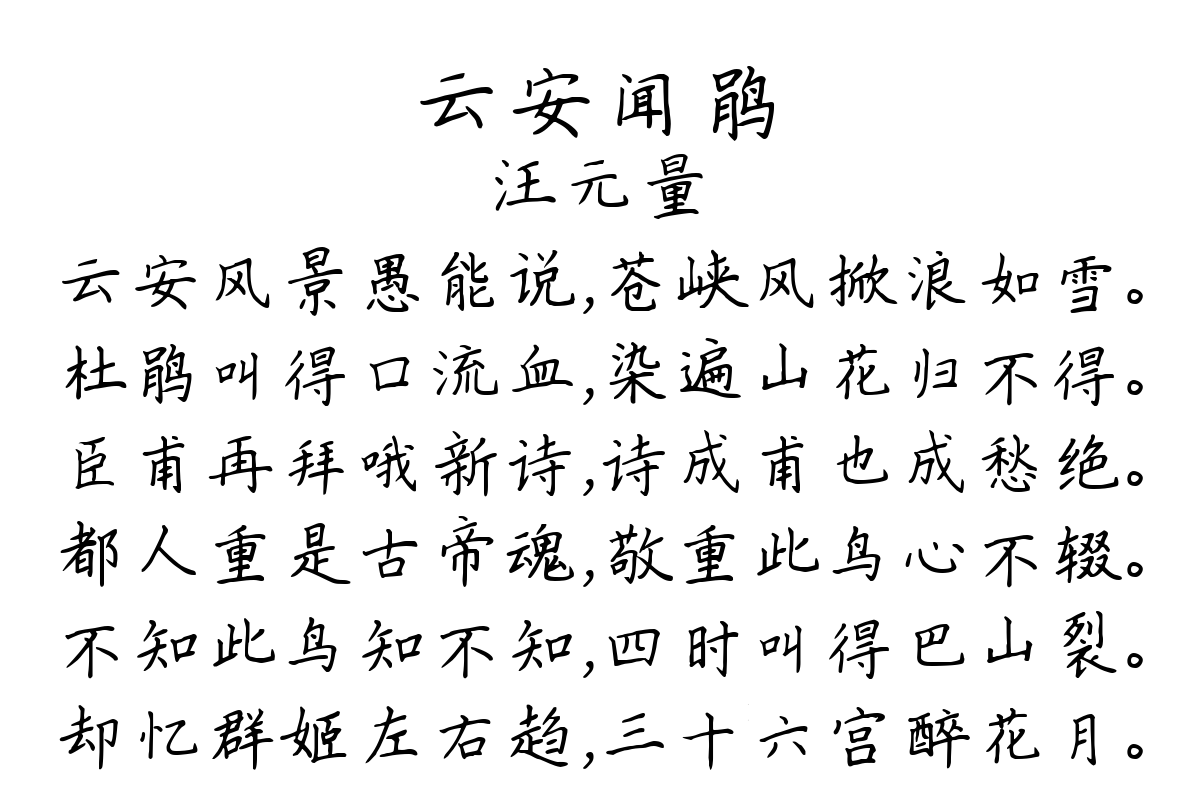 云安闻鹃
汪元量
云安风景愚能说,苍峡风掀浪如雪。
杜鹃叫得口流血,染遍山花归不得。
臣甫再拜哦新诗,诗成甫也成愁绝。
都人重是古帝魂,敬重此鸟心不辍。
不知此鸟知不知,四时叫得巴山裂。
却忆群姬左右趋,三十六宫醉花月。